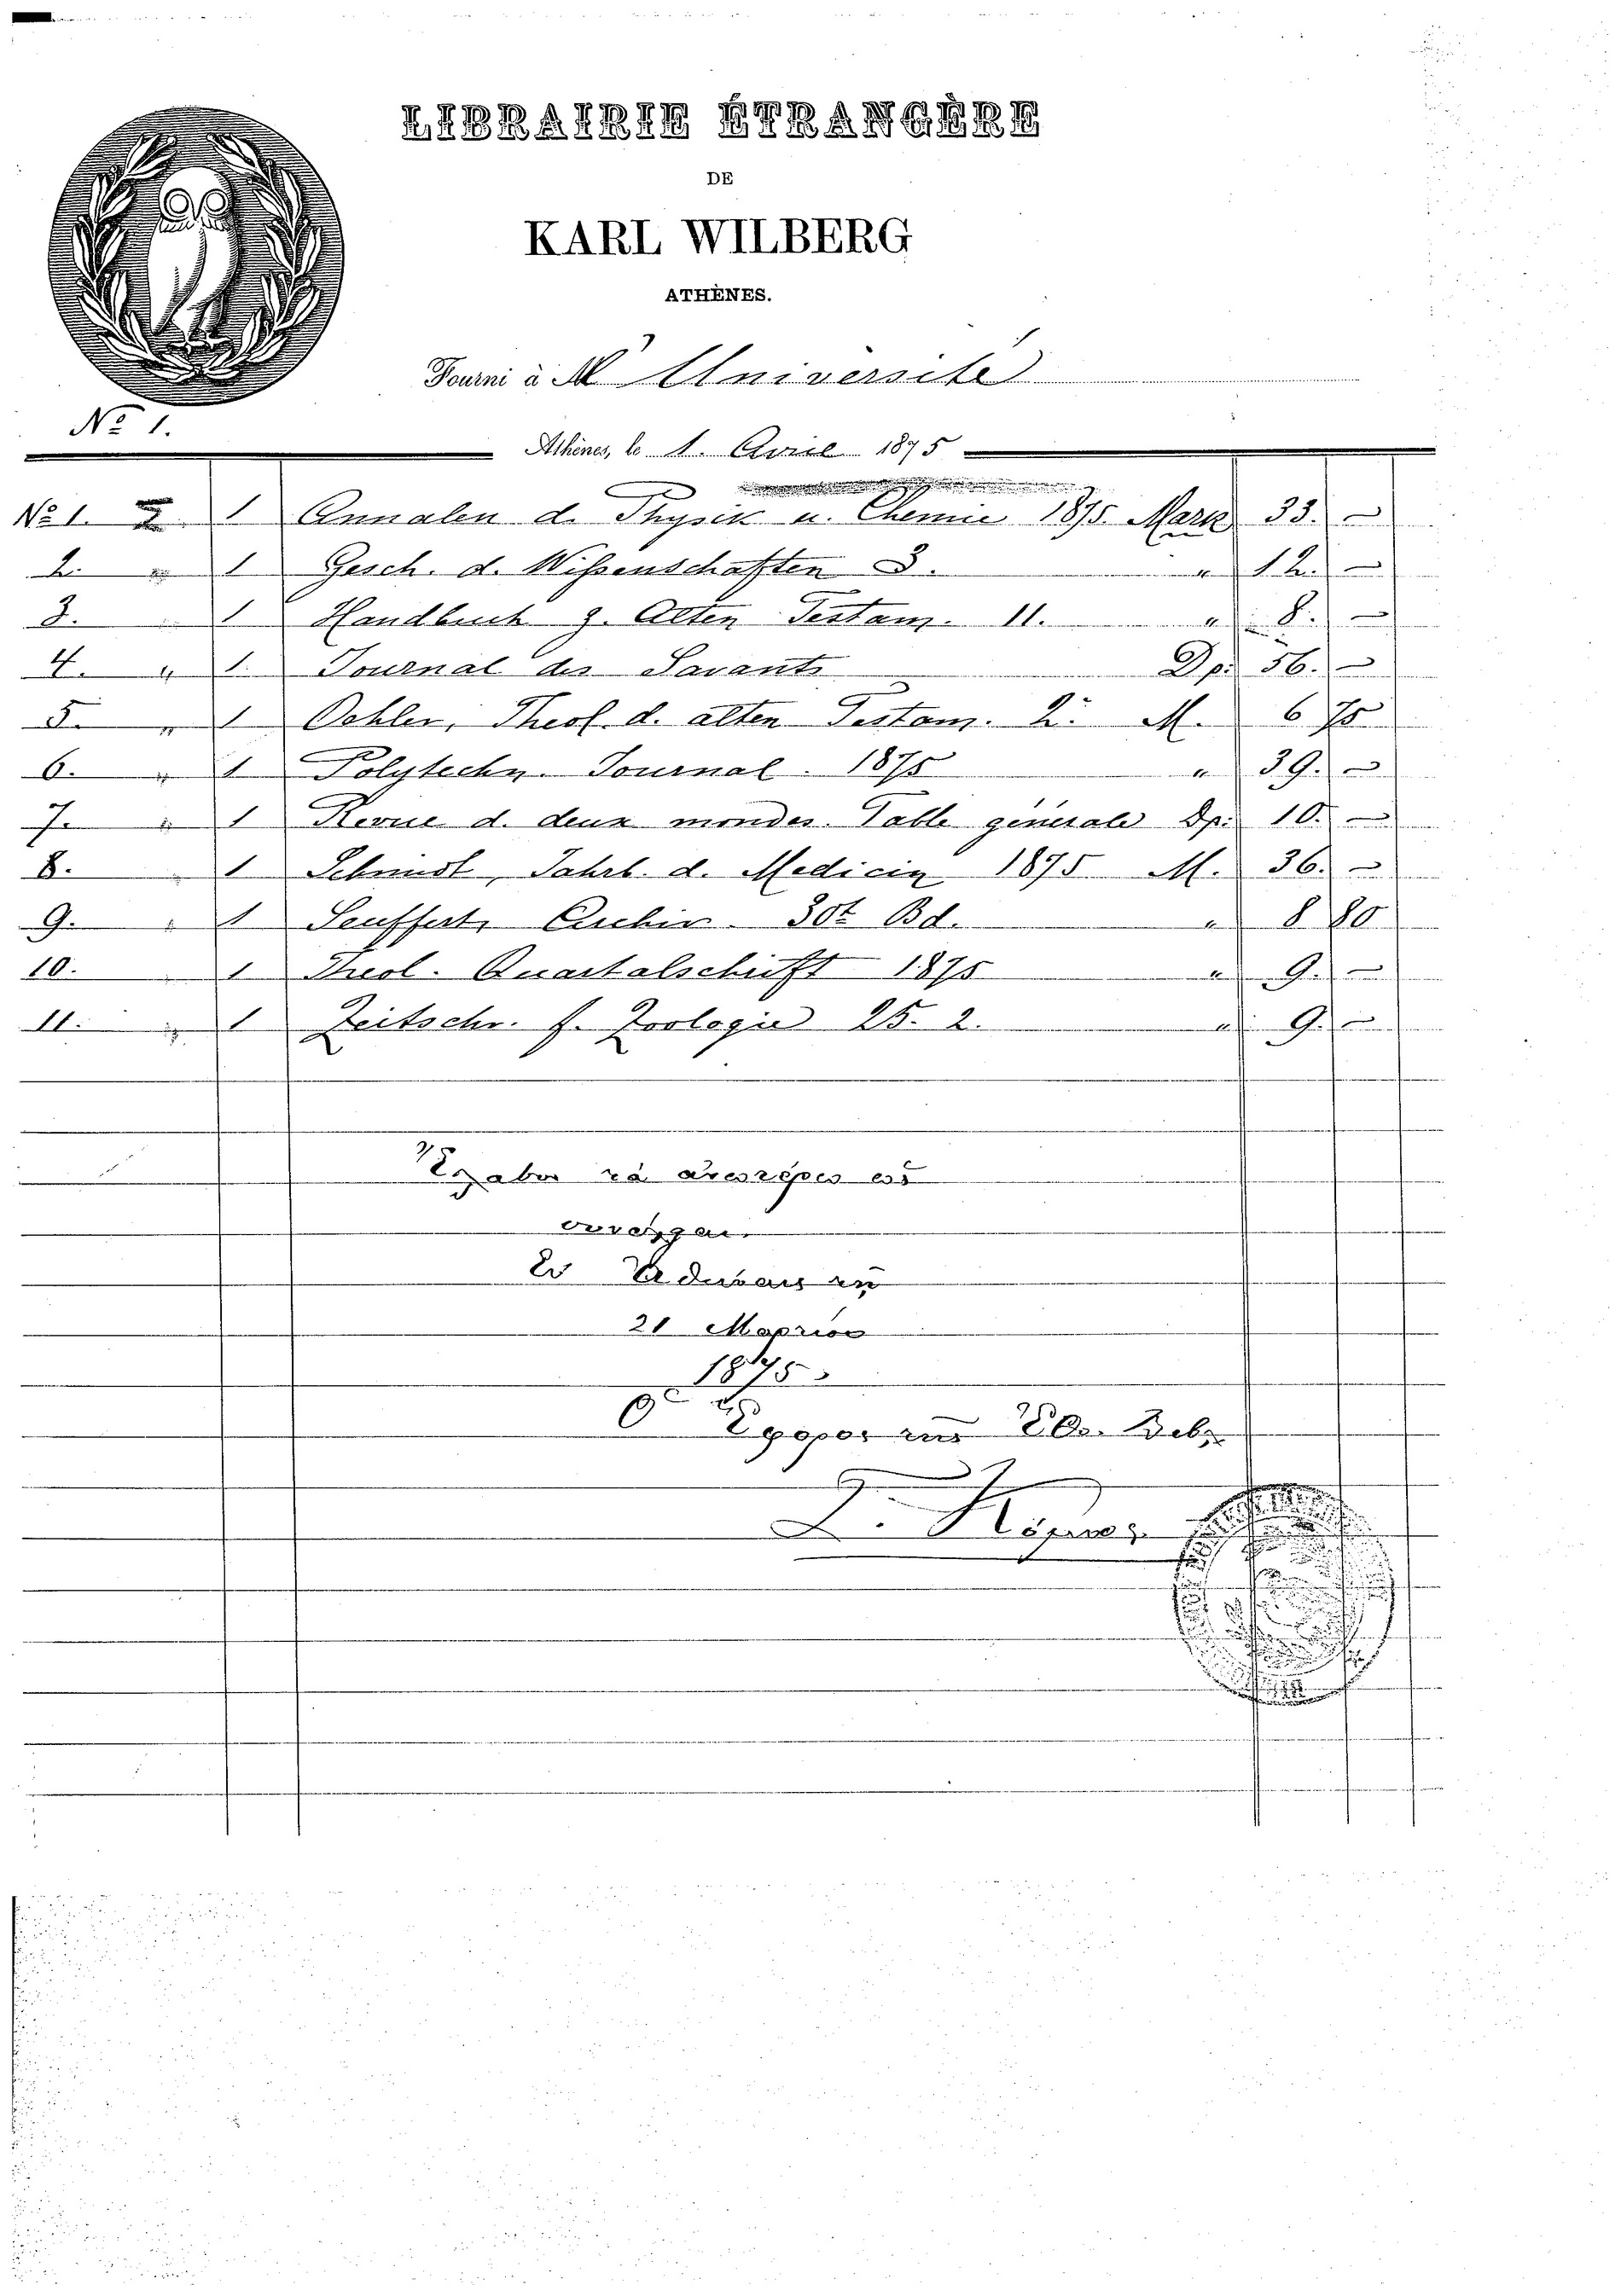 LIBRAIRIE ÉTRANGÈRE
DE
KARL WILBERG
ATHÈNES.
Fourni à M Université
No 1.
Athènes, le 1. Avril 1875
No 1. 1 Annalen d. Physik u. Chemie 1875. Mark 33. —
2. " 1 Gesch. d. Wißenschaften 3. " 12. —
3. 1 Handbuch z. Alten Testam. 11. " 8. —
4. " 1. Journal des Savants Δρ. 56. —
5. " 1 Oehler, Theol. d. alten Testam. 2. M. 6 75
6. " 1 Polytechn. Journal. 1875 " 39. —
7. " 1 Revue d. deux mondes. Table générale Δρ. 10. —
8. " 1 Schmidt, Jahrb. d. Medicin 1875 M. 36. —
9. " 1 Seufferts Archiv. 30t Bd. " 8 80
10. " 1 Theol. Quartalschrift 1875 " 9. —
11. " 1 Zeitschr. f. Zoologie 25. 2. " 9. —
Ἔλαβον τὰ ἀνωτέρω
Ἐν Ἀθήναις τῇ
21 Μαρτίου
1875
Ὁ Ἔφορος τῆς Ἐθν. Βιβλ.